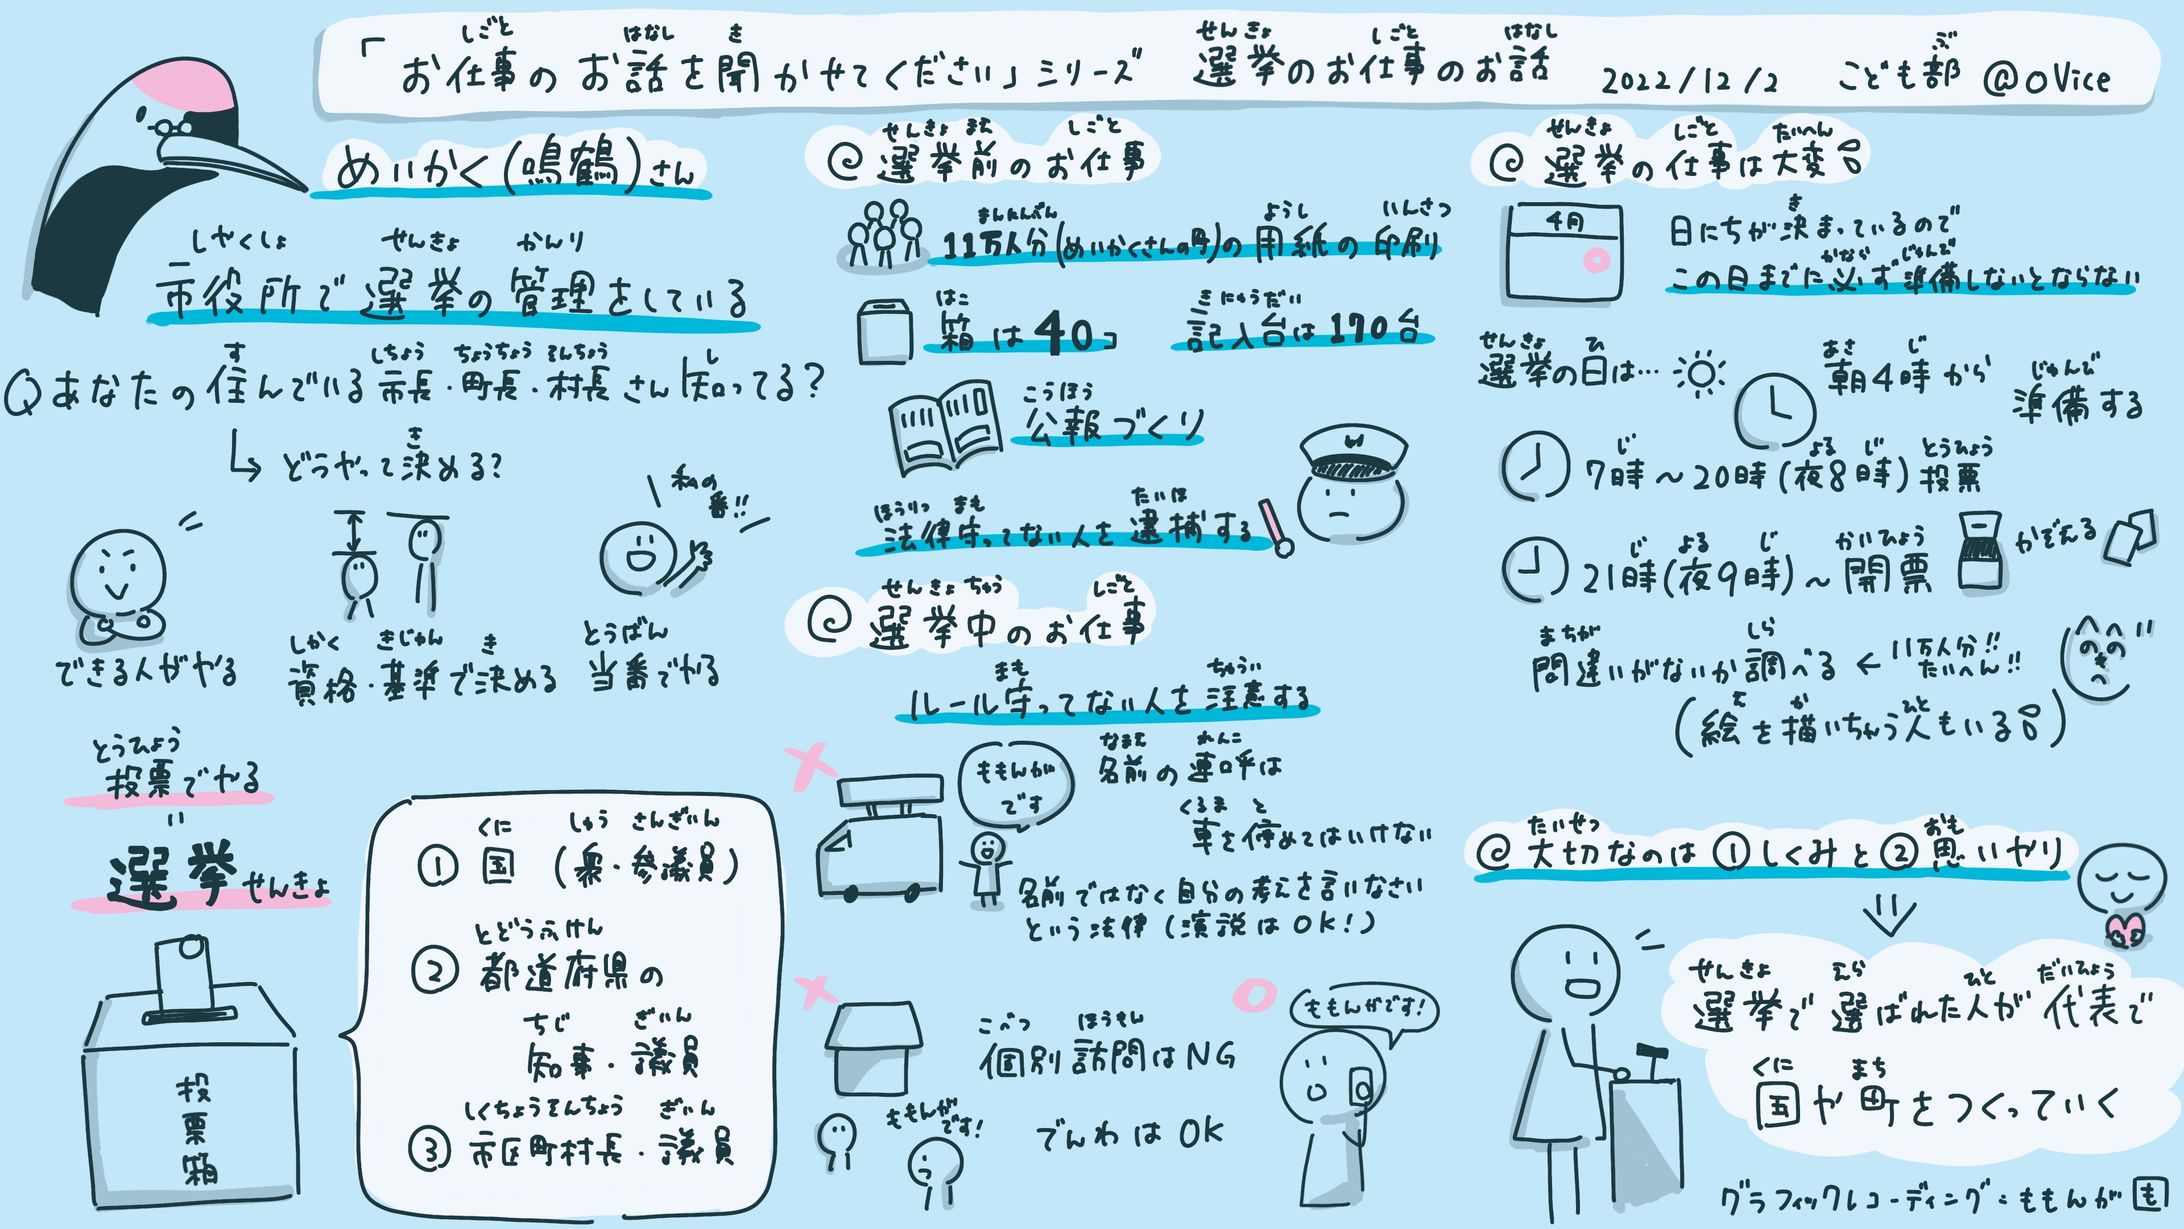 「お仕事のお話を聞かせてください」シリーズ 選挙のお仕事のお話 2022/12/2 こども部 @oVice
しごと はなし き せんきょ しごと はなし ぶ
めいかく(鳴鶴)さん
しやくしょ せんきょ かんり
市役所で選挙の管理をしている
す しちょう ちょうちょう そんちょう し
Qあなたの住んでいる市長・町長・村長さん知ってる?
き
どうやって決める?
私の番!!
できる人がやる
しかく きじゅん き
資格・基準で決める
とうばん
当番でやる
とうひょう
投票でやる
=
選挙 せんきょ
投票箱
くに しゅう さんぎいん
① 国 (衆・参議員)
とどうふけん
② 都道府県の
ちじ ぎいん
知事・議員
しくちょうそんちょう ぎいん
③ 市区町村長・議員
せんきょ まえ しごと
@ 選挙前のお仕事
まんにんぶん ようし いんさつ
11万人分(めいかくさんの町)の用紙の印刷
はこ きにゅうだい
箱は40コ 記入台は170台
こうほう
公報づくり
ほうりつ まも たいほ
法律守ってない人を逮捕する
せんきょ ちゅう しごと
@ 選挙中のお仕事
まも ちゅうい
ルール守ってない人を注意する
ももんが
です
なまえ れんこ
名前の連呼は
くるま と
車を停めてはいけない
名前ではなく自分の考えを言いなさい
という法律(演説はOK!)
こべつ ほうもん
個別訪問はNG
ももんが
です!
でんわはOK
ももんがです!
せんきょ しごと たいへん
@ 選挙の仕事は大変
4月
き
日にちが決まっているので
かなら じゅんび
この日までに必ず準備しないとならない
せんきょ ひ あさ じ じゅんび
選挙の日は… 朝4時から 準備する
じ よる じ とうひょう
7時～20時(夜8時)投票
じ よる じ かいひょう
21時(夜9時)～開票 かぞえる
まちが しら
間違いがないか調べる ← 11万人分!!
たいへん!!
へへ
のの
も
へ
え か ひと
(絵を描いちゃう人もいる)
たいせつ おも
@ 大切なのは①しくみと②思いやり
せんきょ えら ひと だいひょう
選挙で選ばれた人が代表で
くに まち
国や町をつくっていく
グラフィックレコーディング:ももんが も